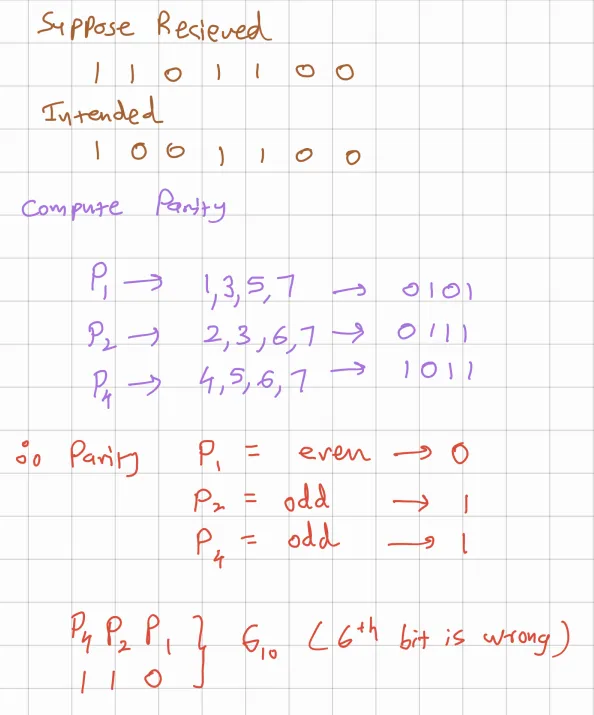 Suppose Recieved
1 1 0 1 1 0 0
Intended
1 0 0 1 1 0 0
Compute Parity
P1 → 1,3,5,7 → 0101
P2 → 2,3,6,7 → 0111
P4 → 4,5,6,7 → 1011
∴ Parity P1 = even → 0
P2 = odd → 1
P4 = odd → 1
P4 P2 P1 } 6₁₀ (6th bit is wrong)
1 1 0